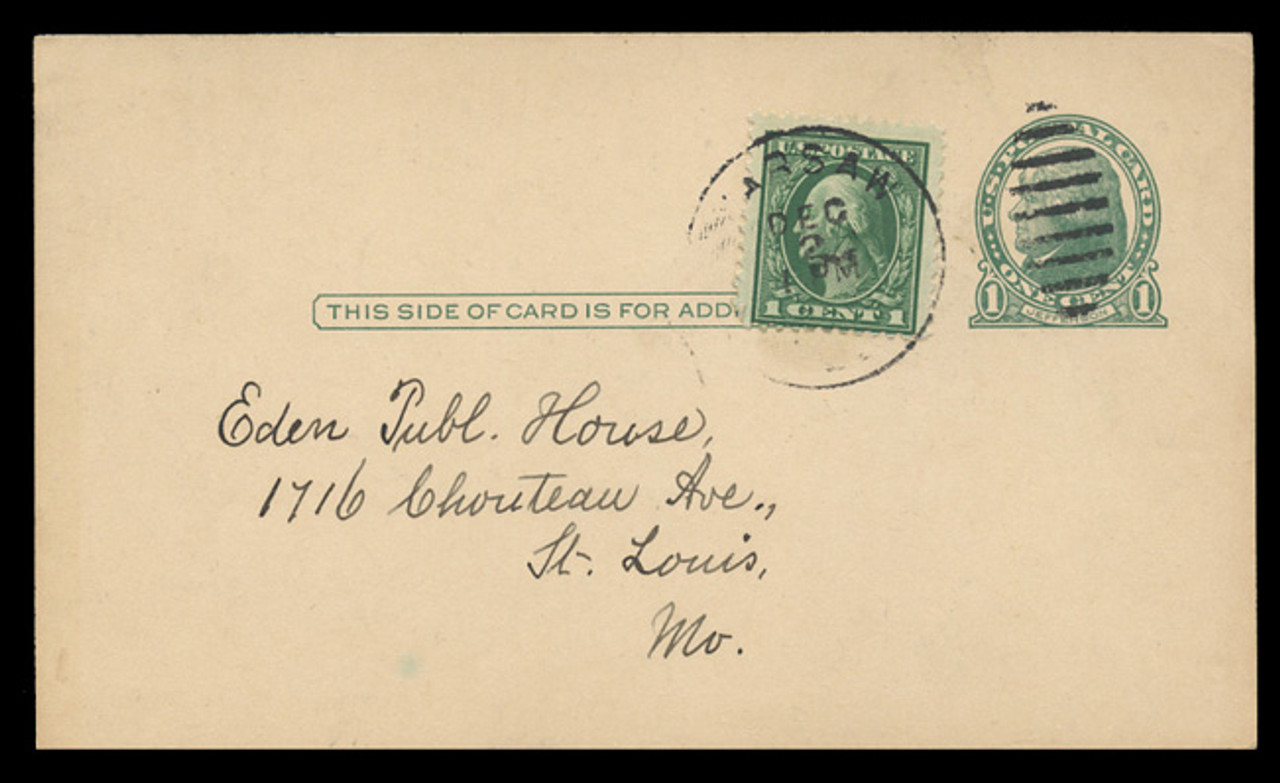 U.S. POSTAGE
1 CENT 1
ARSAW
DEC
M
U.S. POSTAL CARD
1 ONE CENT 1
JEFFERSON
THIS SIDE OF CARD IS FOR ADD
Eden Publ. House,
1716 Chouteau Ave.,
St. Louis,
Mo.